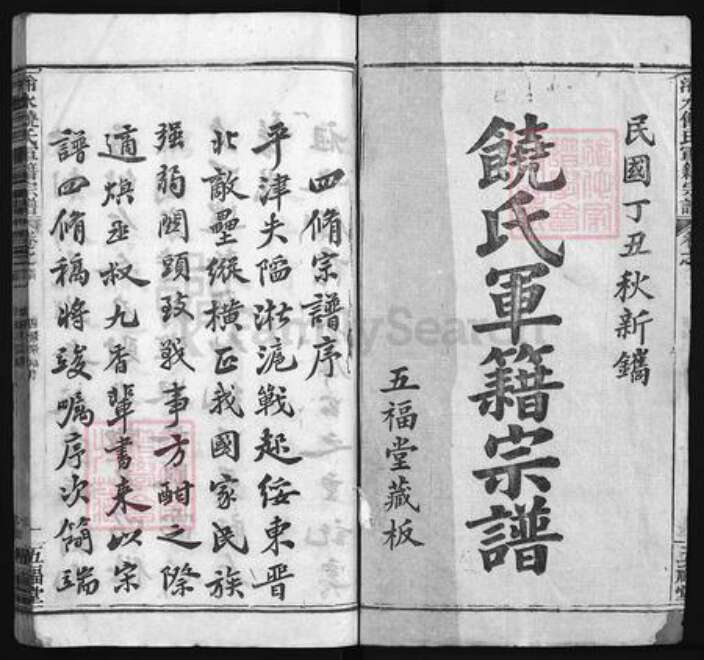 民國丁丑秋新鐫
饒氏軍籍宗譜
五福堂藏板
四脩宗譜序
平津失陷淞滬戰起綏東晉
北敵壘縱橫正我國家民族
强弱關頭致戰事方酣之際
適焕丞叔九香輩書來以宗
譜四脩稿將竣囑序次簡端
五福堂
FamilySearch